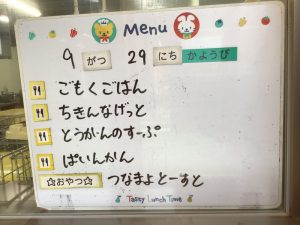 Menu
9 がつ 29 にち かようび
ごもくごはん
ちきんなげっと
とうがんのすーぷ
ぱいんかん
☆おやつ☆ つなまよとーすと
Tasty Lunch Time